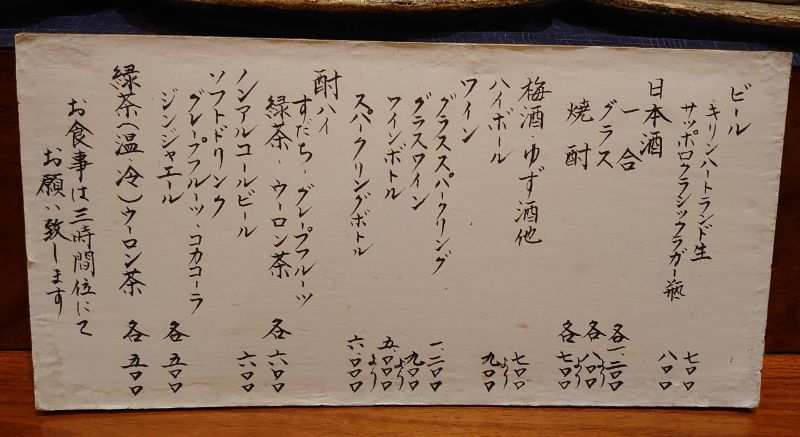 ビール
キリンハートランド生 七〇〇
サッポロクラシックラガー瓶 八〇〇
日本酒
一合 各一、三〇〇より
グラス 各八〇〇より
焼酎 各七〇〇
梅酒 ゆず酒他 七〇〇より
ハイボール 九〇〇
ワイン
グラススパークリング 一、二〇〇
グラスワイン 九〇〇より
ワインボトル 五、〇〇〇より
スパークリングボトル 六、〇〇〇
酎ハイ
すだち・グレープフルーツ
緑茶・ウーロン茶 各六〇〇
ノンアルコールビール 六〇〇
ソフトドリンク
グレープフルーツ・コカコーラ
ジンジャエール 各五〇〇
緑茶(温・冷)ウーロン茶 各五〇〇
お食事は三時間位にて
お願い致します